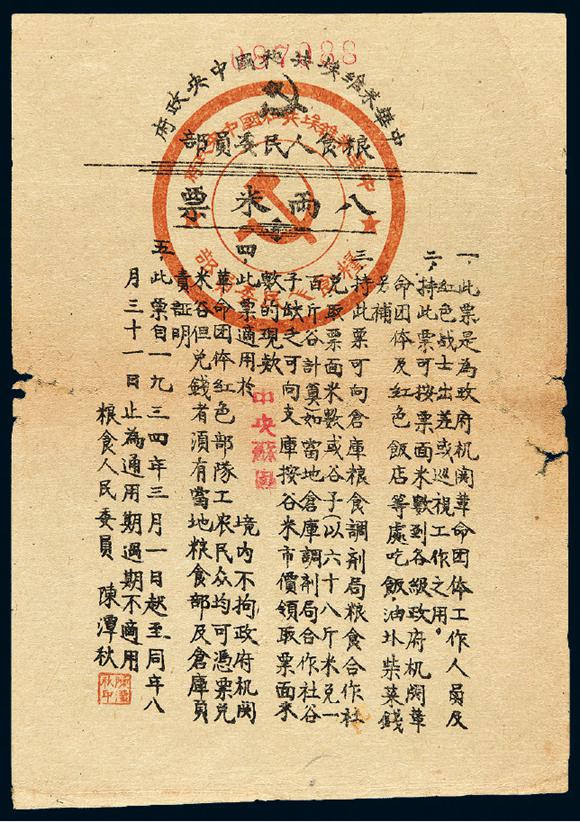 中華蘇維埃共和國中央政府
粮食人民委員部
八両米票
中華蘇維埃共和國中央政府
糧食人民委員部
一、此票是為政府机関革命团体工作人員及
红色战士出差或巡視工作之用。
二、持此票可按票面米數到各級政府机関革
命团体及红色飯店等處吃飯，油圤柴菜錢
另補
三、持此票可向倉庫粮食調剂局粮食合作社
兑取票面米數或谷子(以六十八斤米兑一
百斤谷計算)如當地倉庫調剂局合作社谷
子缺乏可向支庫按谷米市價領取票面米
數的現款
四、此票適用於中央蘇區境内不拘政府机関
革命团体红色部隊工农民众均可憑票兑
米谷但兑錢者須有當地粮食部及倉庫負
責証明
五、此票自一九三四年三月一日起至同年八
月三十一日止為通用期過期不適用
粮食人民委員 陳潭秋
陳潭秋印